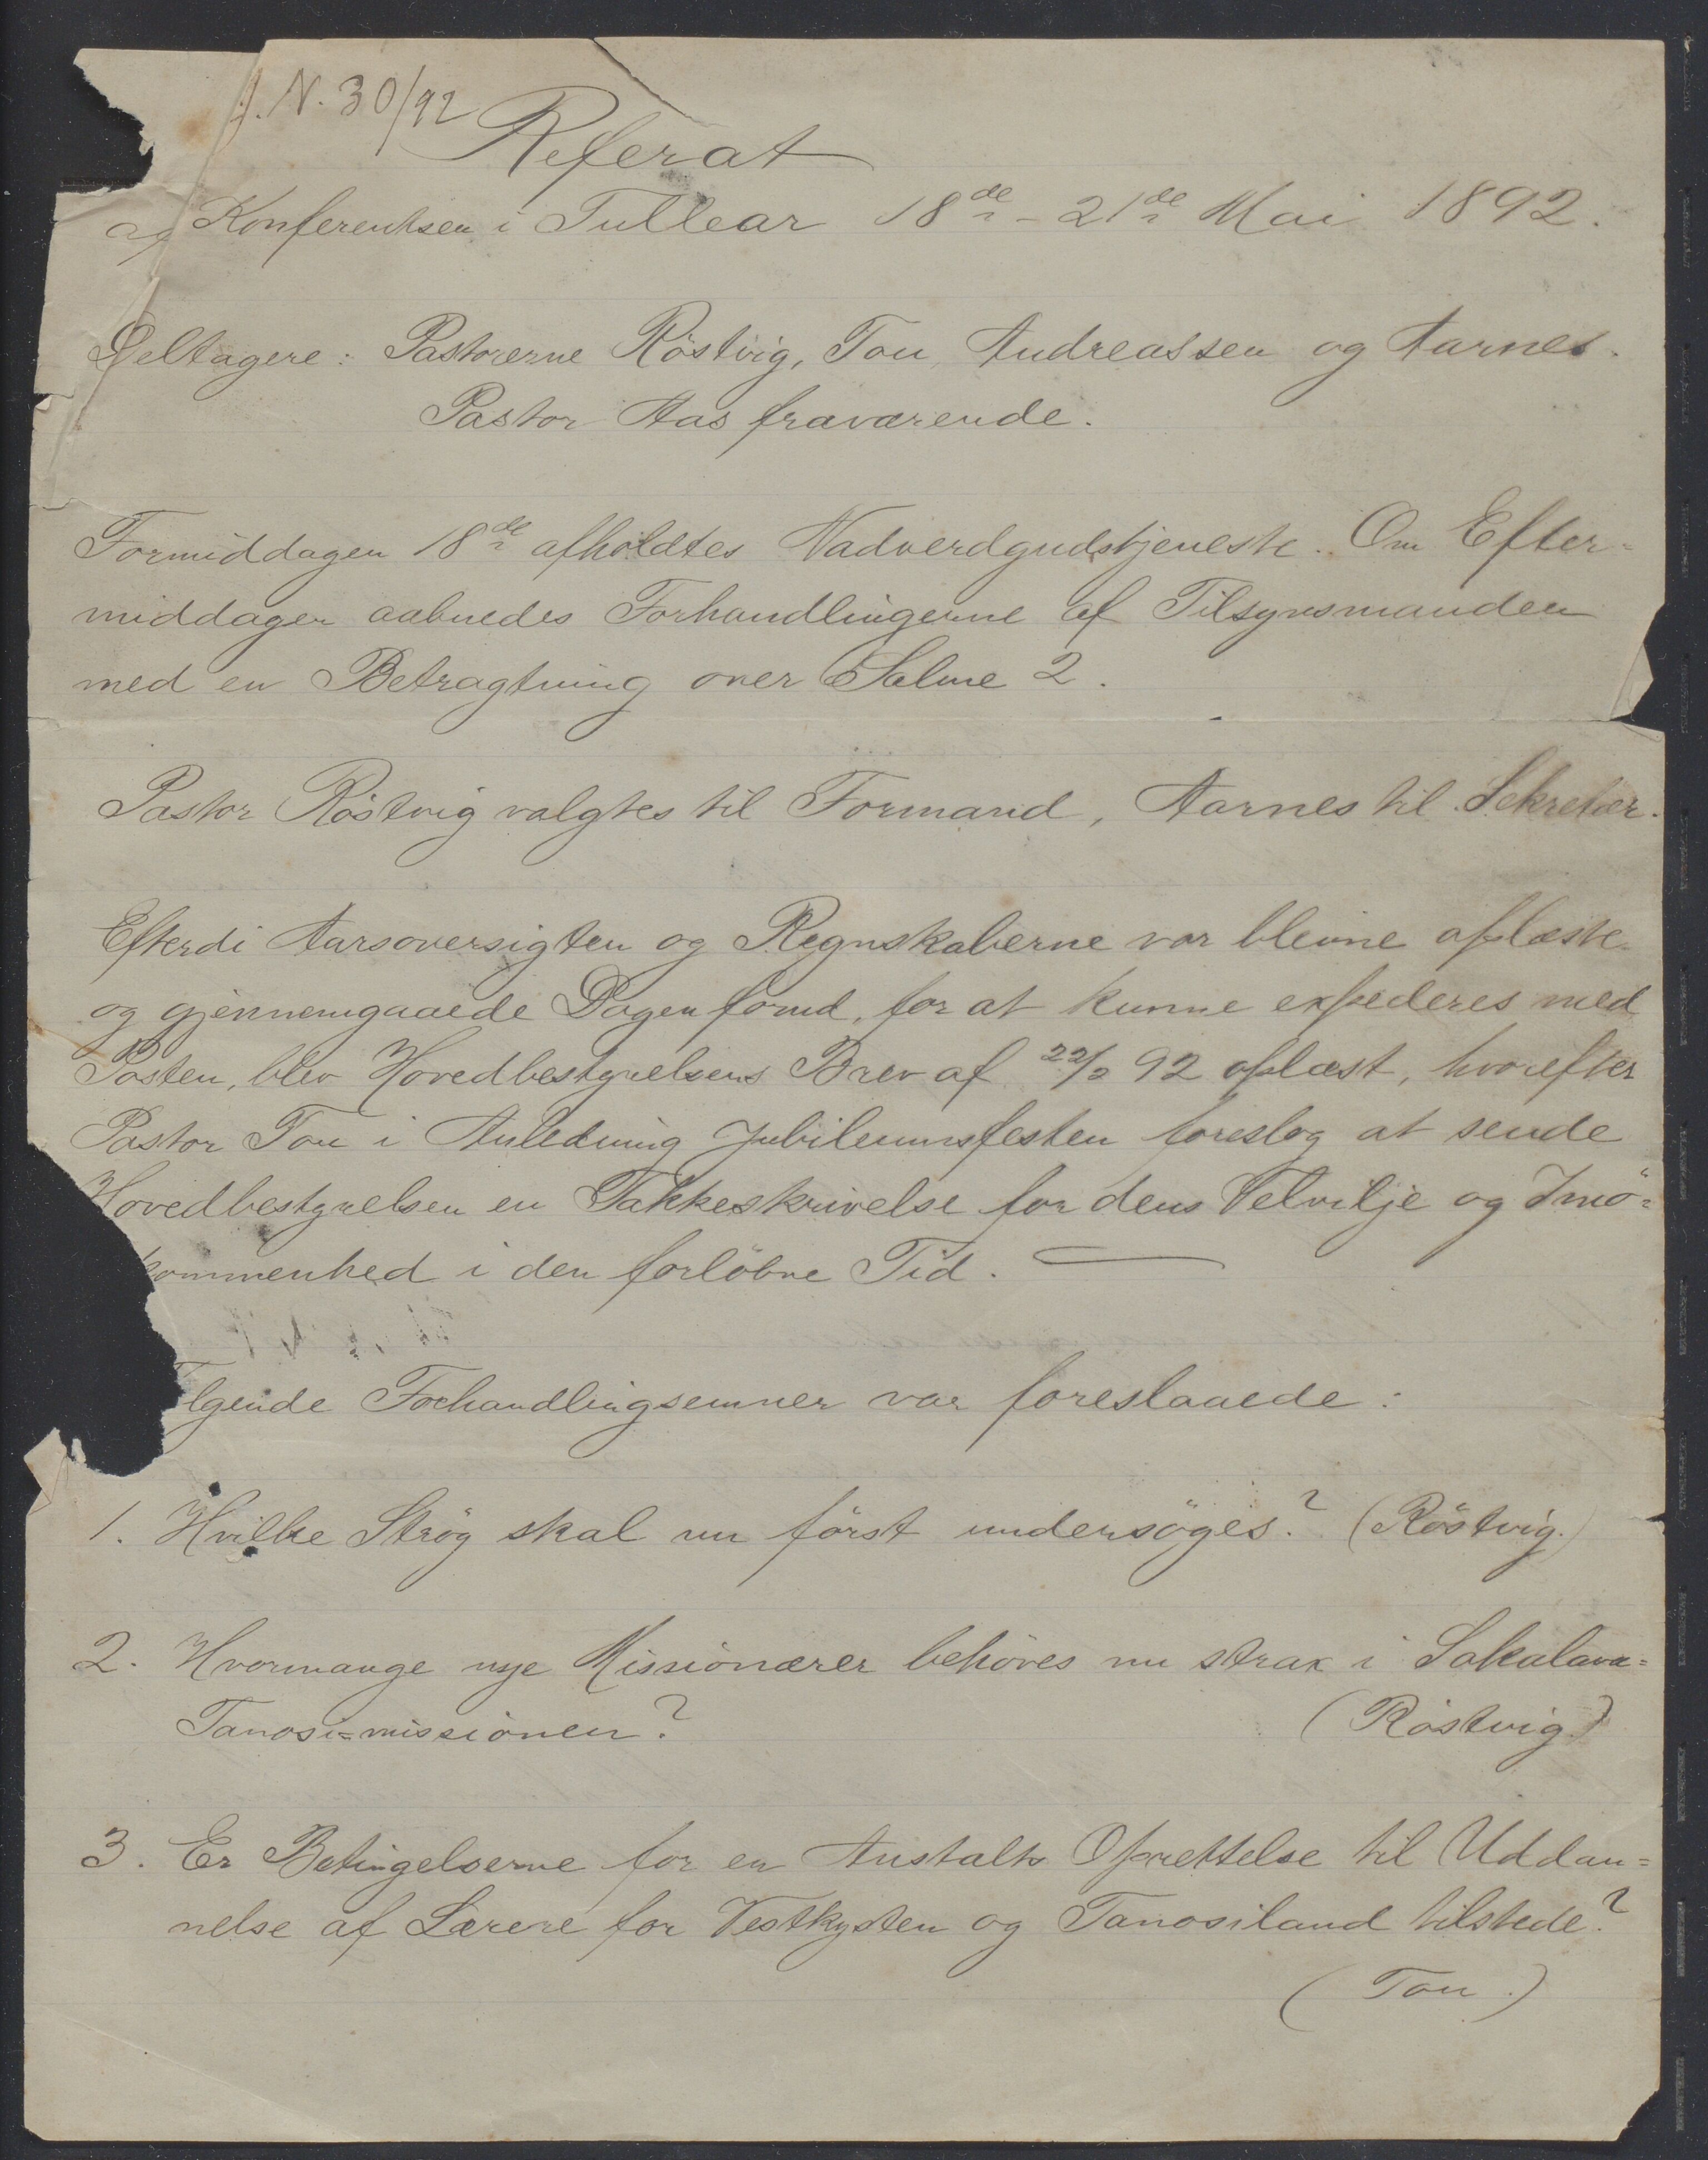 J. N. 30/92
Referat
af Konferentsen i Tullear 18de - 21de Mai 1892.
Deltagere: Pastorerne Röstvig, Tou, Andreassen og Aarnes.
Pastor Aas fraværende.
Formiddagen 18de afholdtes Nadverdgudstjeneste. Om Efter=
middagen aabnedes Forhandlingerne af Tilsynsmanden
med en Betragtning over Salme 2.
Pastor Röstvig valgtes til Formand, Aarnes til Sekretær.
Efterdi Aarsoversigten og Regnskaberne var blevne oplæste
og gjennemgaaede Dagen forud, for at kunne expederes med
Posten, blev Hovedbestyrelsens Brev af 22/2 92 oplæst, hvorefter
Pastor Tou i Anledning Jubileumsfesten foreslog at sende
Hovedbestyrelsen en Takkeskrivelse for dens Velvilje og Imö=
kommenhed i den forlöbne Tid.
lgende Forhandlingsemner var foreslaaede:
1. Hvilke Strög skal nu först undersöges? (Röstvig.)
2. Hvormange nye Missionærer behöves nu strax i Sakalava=
Tanosi=missionen? (Röstvig.)
3. Er Betingelserne for en Anstalts Oprettelse til Uddan=
nelse af Lærere for Vestkysten og Tanosiland tilstede?
(Tou.)